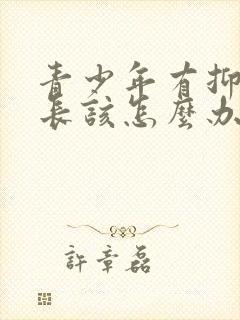 青少年有抑
長該怎麼办
許章磊